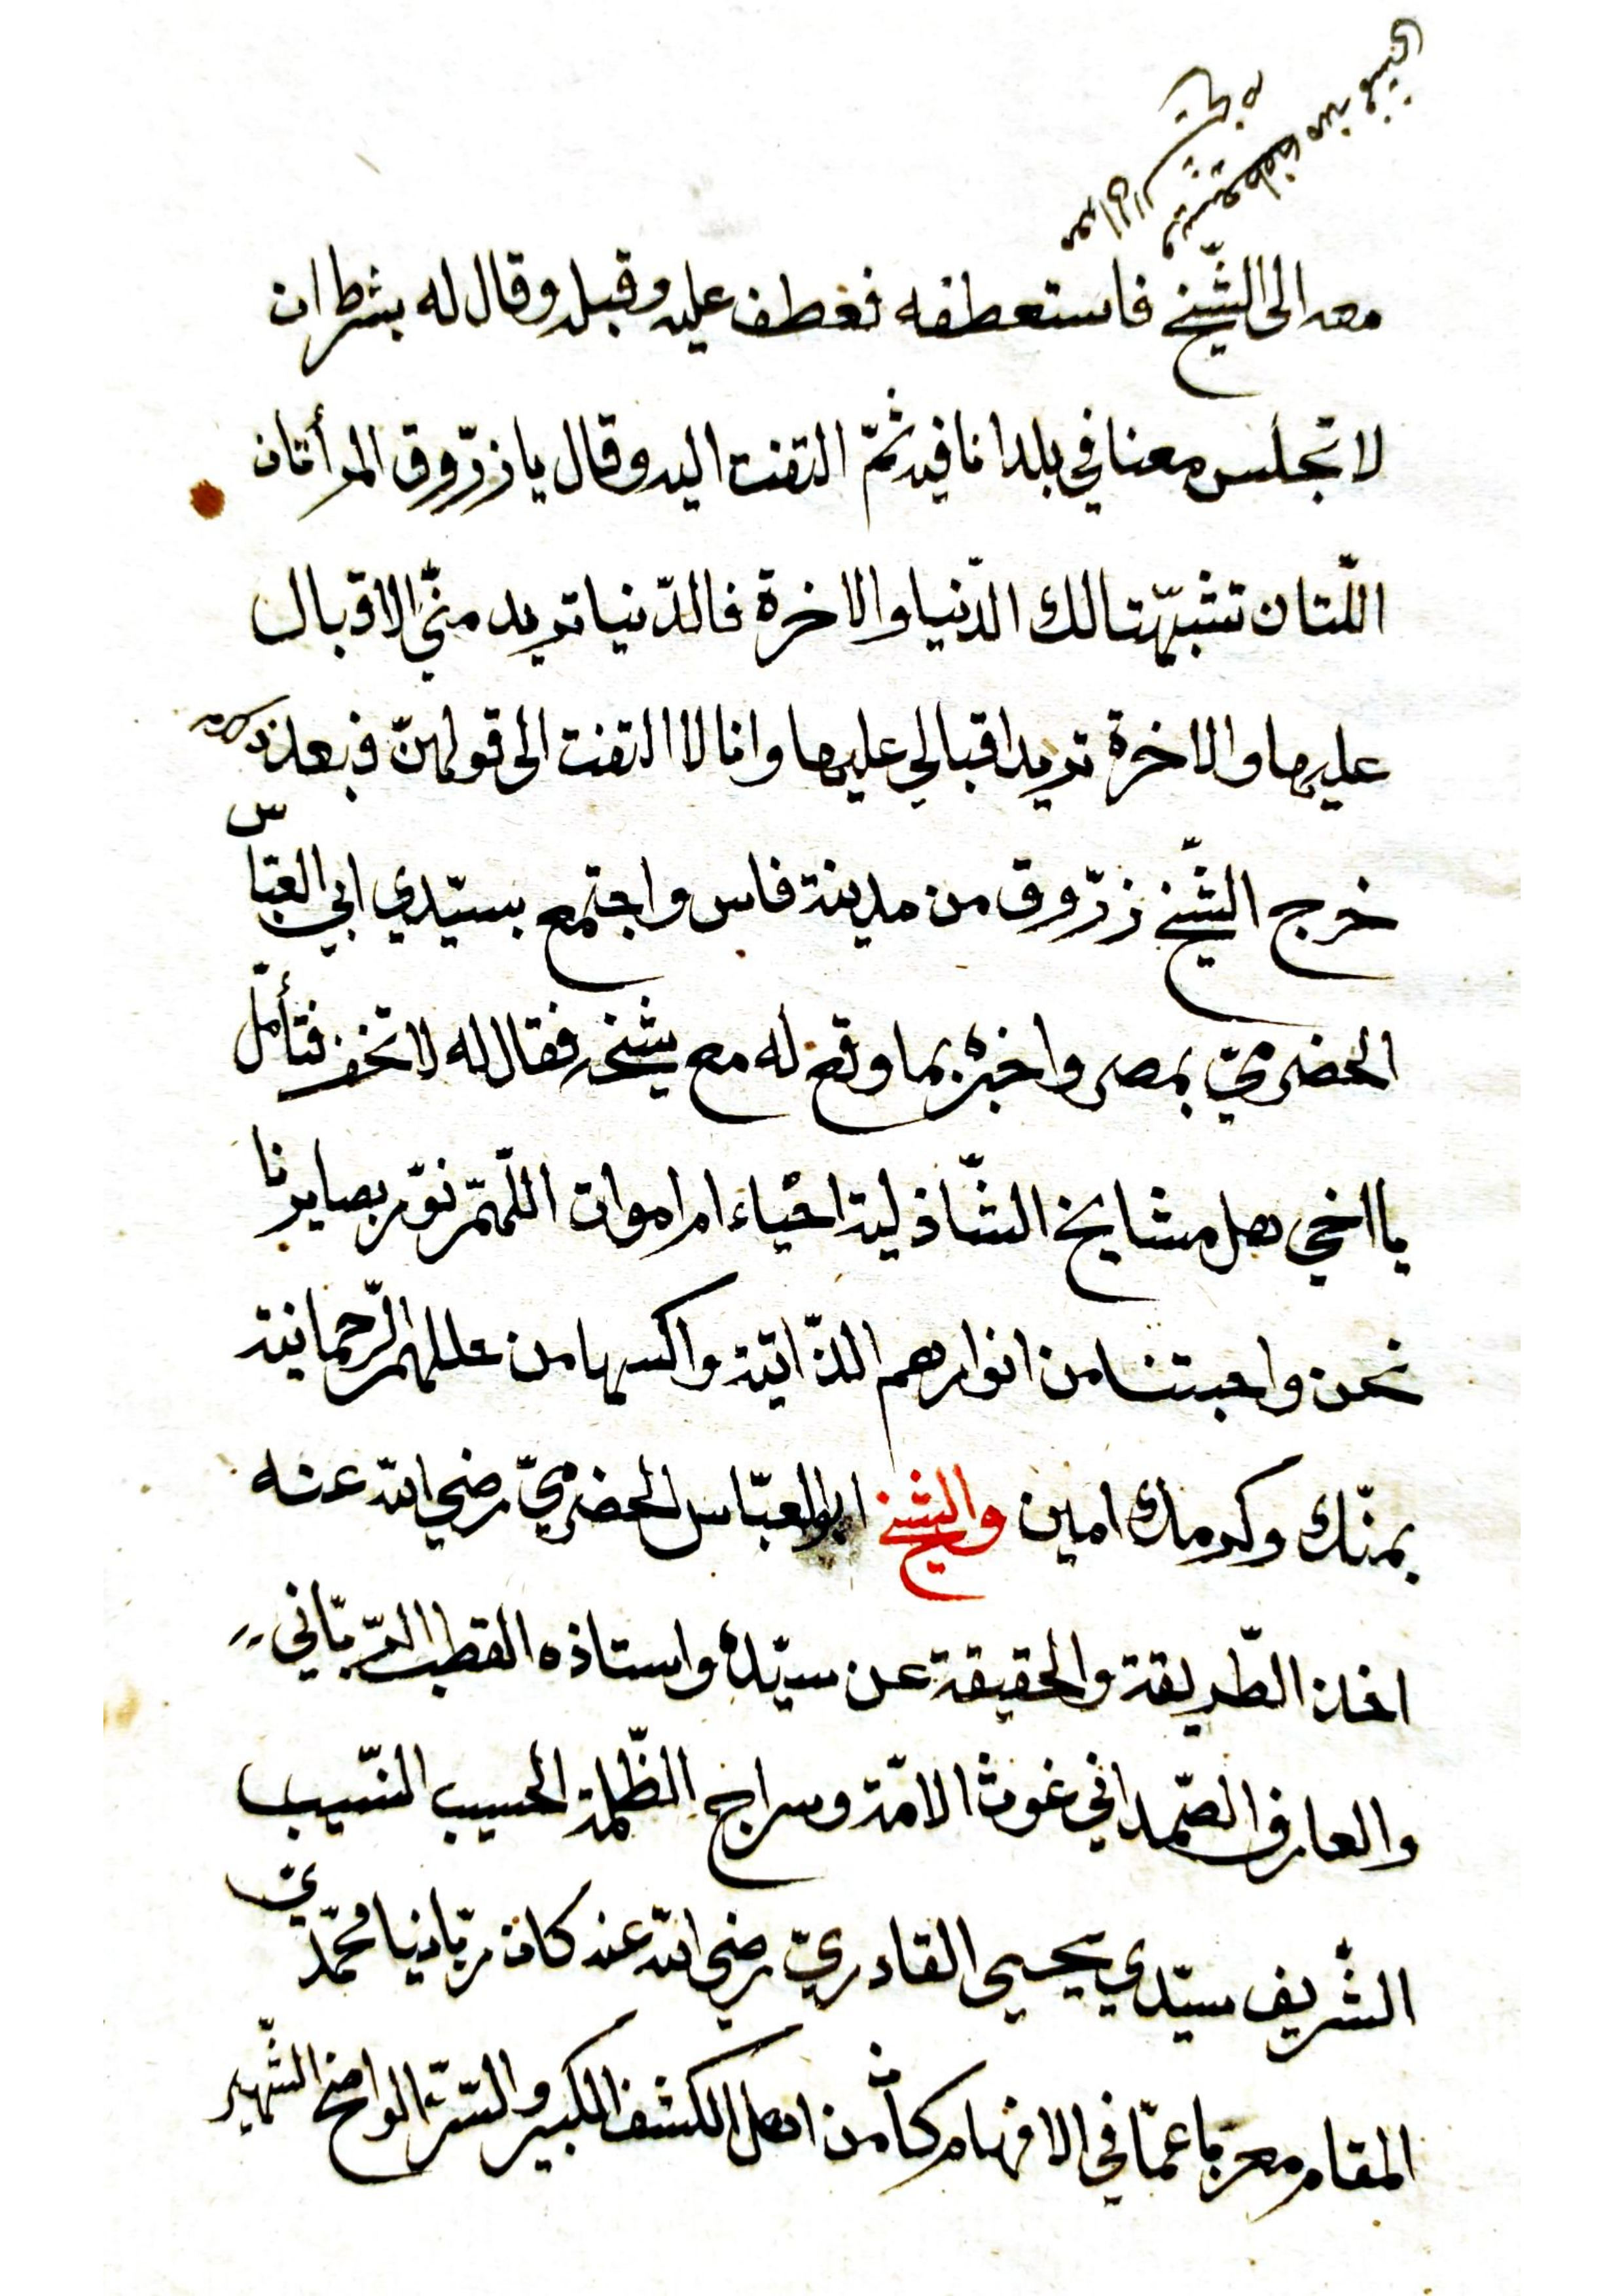 معه الى الشّيخ فاستعطفه فعطف عليه وقبله وقال له بشرط ان
لا تجلس معنا في بلد انا فيه ثمّ التفت اليه وقال يا زرّوق المرأتان
اللّتان تشبّهتا لك الدّنيا والاخرة فالدّنيا تريد منّي الاقبال
عليها والاخرة تريد اقبالي عليها وانا لا التفت الى قولهنّ فبعد ذلك
خرج الشّيخ زرّوق من مدينة فاس واجتمع بسيّدي ابي العبّاس
الحضرميّ بمصر واخبره بما وقع له مع شيخه فقال له لا تخف فتأمّل
يا اخي هل مشايخ الشّاذلية احياء ام اموات اللّهمّ نوّر بصايرنا
نحن واحبتنا من انوارهم الذّاتية واكسها من عللهم الرّحمانية
بمنّك وكرمك امين والشيخ ابو العبّاس الحضرميّ رضي الله عنه
اخذ الطّريقة والحقيقة عن سيّده واستاذه القطب الرّبّاني
والعارف الصّمداني غوث الامّة وسراج الظّلمة الحسيب النّسيب
الشّريف سيّدي يحيى القادريّ رضي الله عنه كان ربّانيا محمّديّ
المقام معربا عمّا في الافهام كان من اهل الكشف الكبير والسّرّ الواضح الشّهير